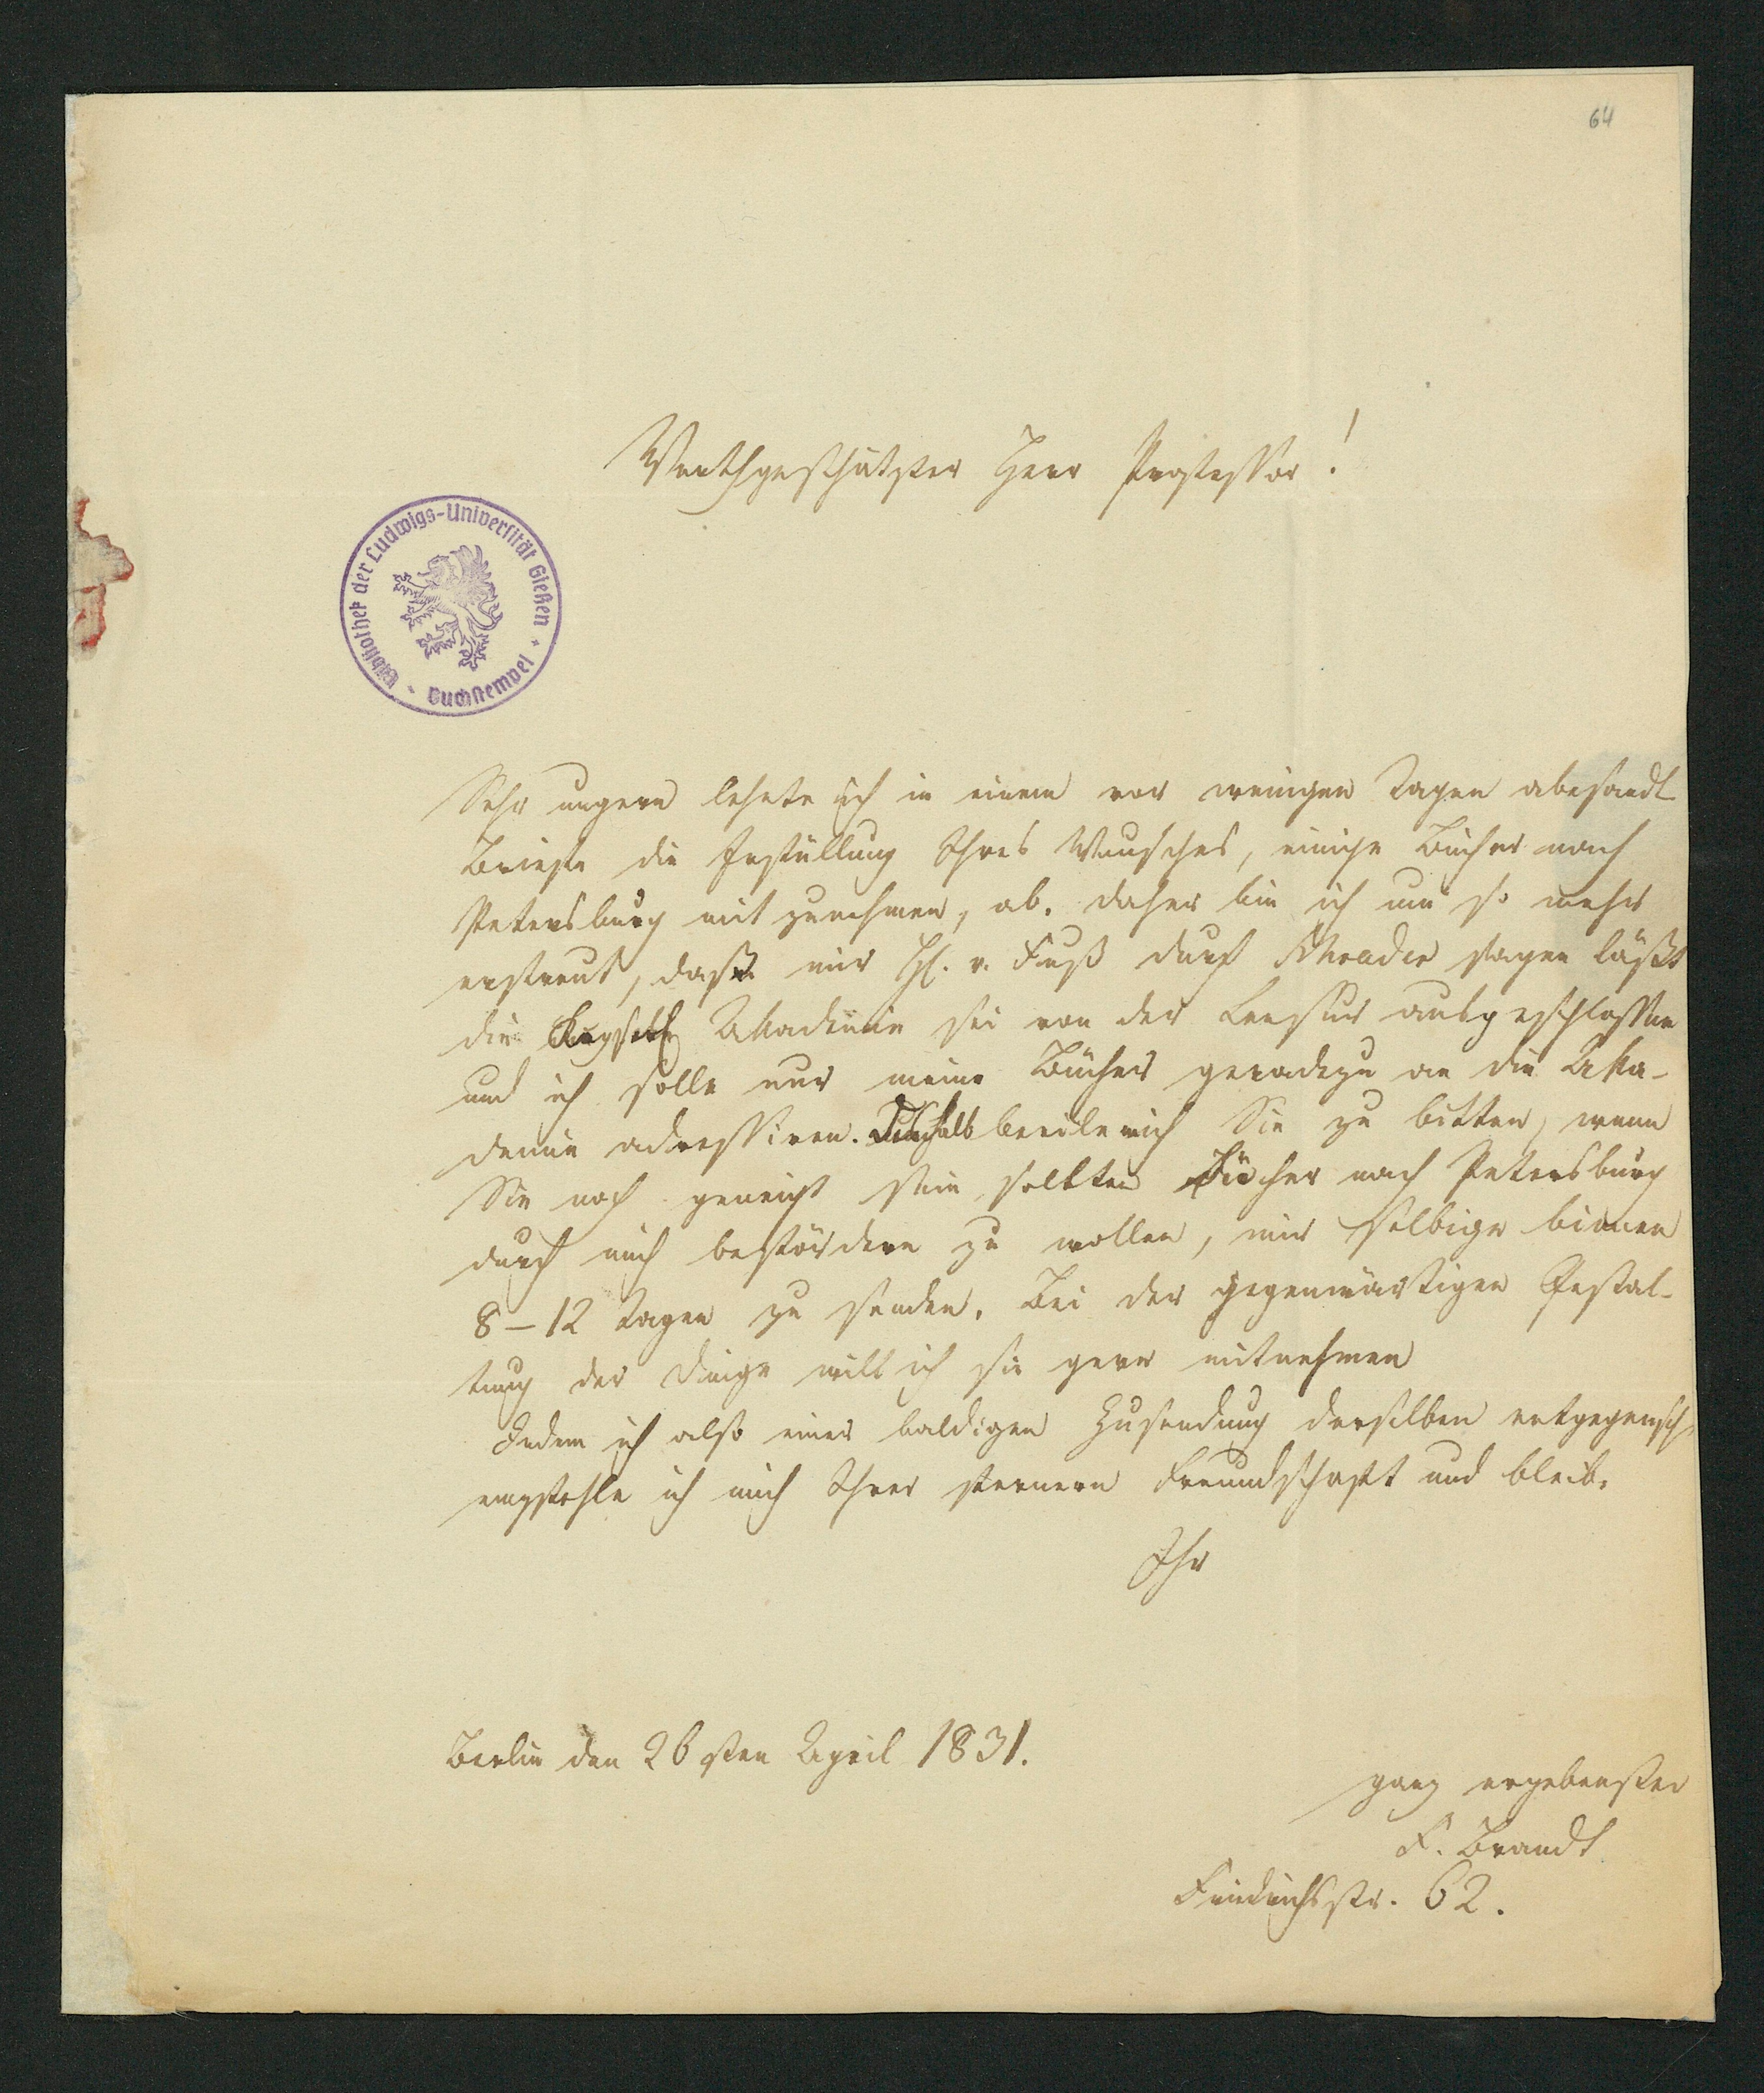 64
Werthgeschätzter Herr Professor!
Bibliothek der Ludwigs-Universität Gießen
Buchstempel
Sehr ungern lehnte ich in einem vor wenigen Tagen abesandt
Briefe die Erfüllung Ihres Wunsches, einige Bücher nach
Petersburg mit zunehmen, ab. Daher bin ich um so mehr
erfreut, daß mir H. v. Fuß durch Schrader sagen läßt
die Akademie sei von der Censur ausgeschlossen
und ich solle nur meine Bücher geradezu an die Aka-
demie adressiren. Deshalb beeile mich Sie zu bitten, wenn
Sie noch geneigt sein sollten Bücher nach Petersburg
durch mich befördern zu wollen, mir selbige binnen
8–12 Tagen zu senden. Bei der gegenwärtigen Gestal-
tung der Dinge will ich sie gern mitnehmen
Indem ich also einer baldigen Zusendung derselben entgegenseh,
empfehle ich mich Ihrer fernern Freundschaft und bleibe
Ihr
Berlin den 26sten April 1831.
ganz ergebenster
F. Brandt
Friedrichsstr. 62.